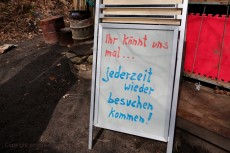 Ihr könnt uns
mal...
jederzeit
wieder
besuchen
kommen!